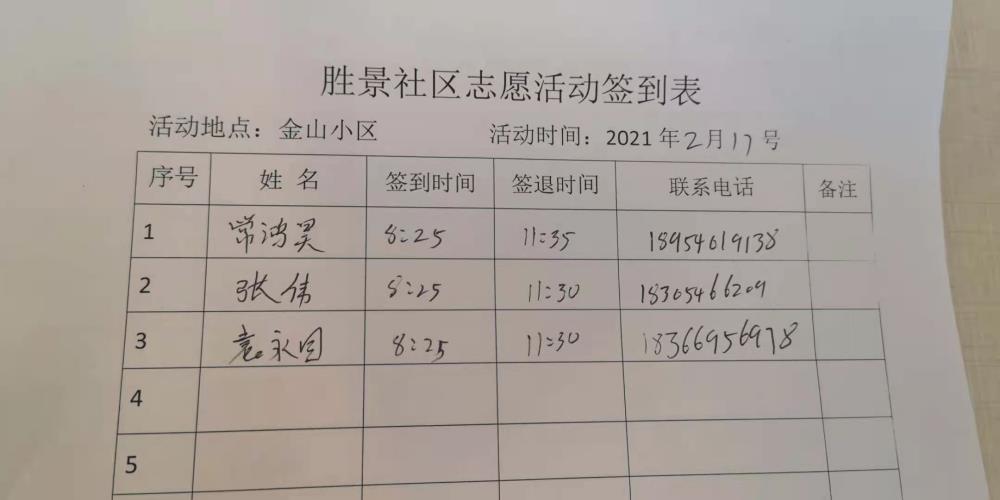 胜景社区志愿活动签到表
活动地点：金山小区 活动时间：2021年2月17号
序号 姓名 签到时间 签退时间 联系电话 备注
1 常鸿昊 8:25 11:35 18954619138
2 张伟 8:25 11:30 18305466209
3 袁永国 8:25 11:30 18366956978
4
5